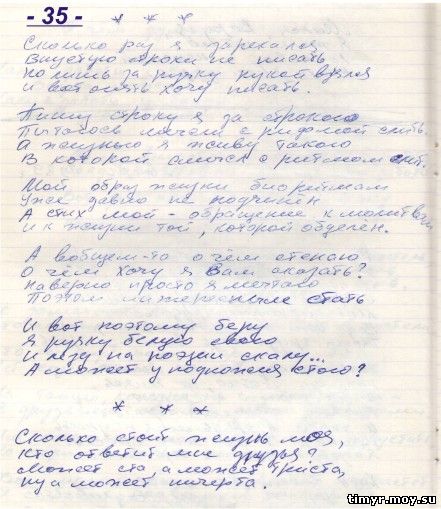 - 35 -
* * *
Сколько раз я зарекался
Впустую строки не писать
Но лишь за ручку рукой взялся
И вот опять хочу писать.
Пишу строку я за строкою
Пытаюсь мячем с рифмой слить.
А жизнью я живу такою
В которой смысл с ритмом слит.
Мой образ жизни биоритмам
Уж давно не подчинен
А стих мой - обращение к молитвам
И к жизни той, которой обделен.
А вобщем-то о чём стенаю
О чём хочу я Вам сказать?
Наверно просто я мечтаю
Поэтом стать
И вот поэтому беру
Я ручку белую свою
И лезу на поэзии скалу...
А может у подножия стою?
* * *
Сколько стоит жизнь моя,
Кто ответит мне друзья?
Может ста, а может триста,
Ну а может ничерта.
timyr.moy.su